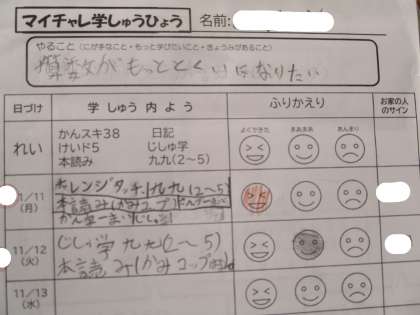 マイチャレ学しゅうひょう
名前:
やること(にが手なこと・もっと学びたいこと・きょうみがあること)
算数がもっととくいになりたい
日づけ
学しゅう内よう
ふりかえり
お家の人
のサイン
れい
かんスキ38 日記
けいド5 じしゅ学
本読み 九九(2~5)
よくできた
まあまあ
あんまり
1/11
(月)
オレンジタッチ.九九(2~5)
本読み(かみコップ
11/12
(火)
じしゅ学 九九(2~5)
本読み(かみコップ
11/13
(水)